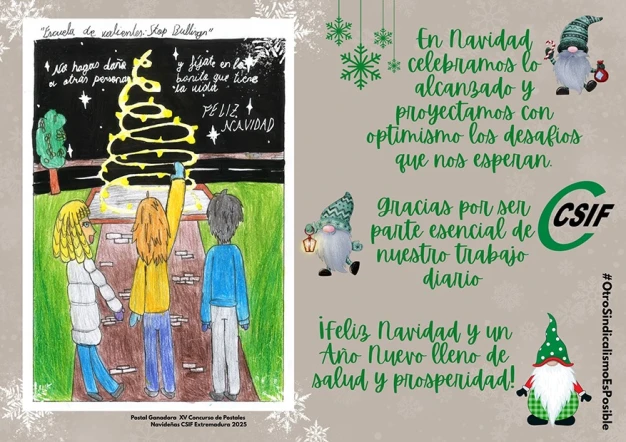 "Escuela de valientes: Stop Bullying"
No hagas daño
a otras personas
y fíjate en lo
bonita que tiene
la vida
FELIZ
NAVIDAD
Postal Ganadora XV Concurso de Postales
Navideñas CSIF Extremadura 2025
En Navidad
celebramos lo
alcanzado y
proyectamos con
optimismo los desafíos
que nos esperan.
Gracias por ser
parte esencial de
nuestro trabajo
diario
CSIF
¡Feliz Navidad y un
Año Nuevo lleno de
salud y prosperidad!
#OtroSindicalismoEsPosible